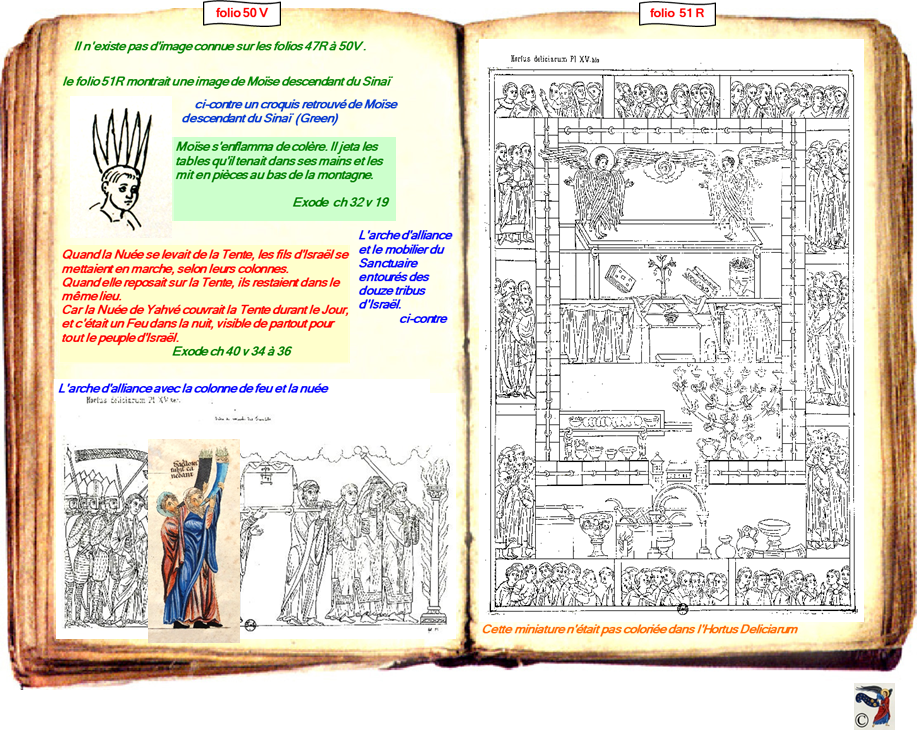 folio 50 V
Il n'existe pas d'image connue sur les folios 47R à 50V .
le folio 51R montrait une image de Moïse descendant du Sinaï
ci-contre un croquis retrouvé de Moïse
descendant du Sinaï (Green)
Moïse s'enflamma de colère. Il jeta les
tables qu'il tenait dans ses mains et les
mit en pièces au bas de la montagne.
Exode ch 32 v 19
L'arche d'alliance
et le mobilier du
Sanctuaire
entourés des
douze tribus
d'Israël.
ci-contre
Quand la Nuée se levait de la Tente, les fils d'Israël se
mettaient en marche, selon leurs colonnes.
Quand elle reposait sur la Tente, ils restaient dans le
même lieu.
Car la Nuée de Yahvé couvrait la Tente durant le Jour,
et c'était un Feu dans la nuit, visible de partout pour
tout le peuple d'Israël.
Exode ch 40 v 34 à 36
L'arche d'alliance avec la colonne de feu et la nuée
Hortus deliciarum Pl XV
folio 51 R
Hortus deliciarum Pl XV.bis
Cette miniature n'était pas coloriée dans l'Hortus Deliciarum
©